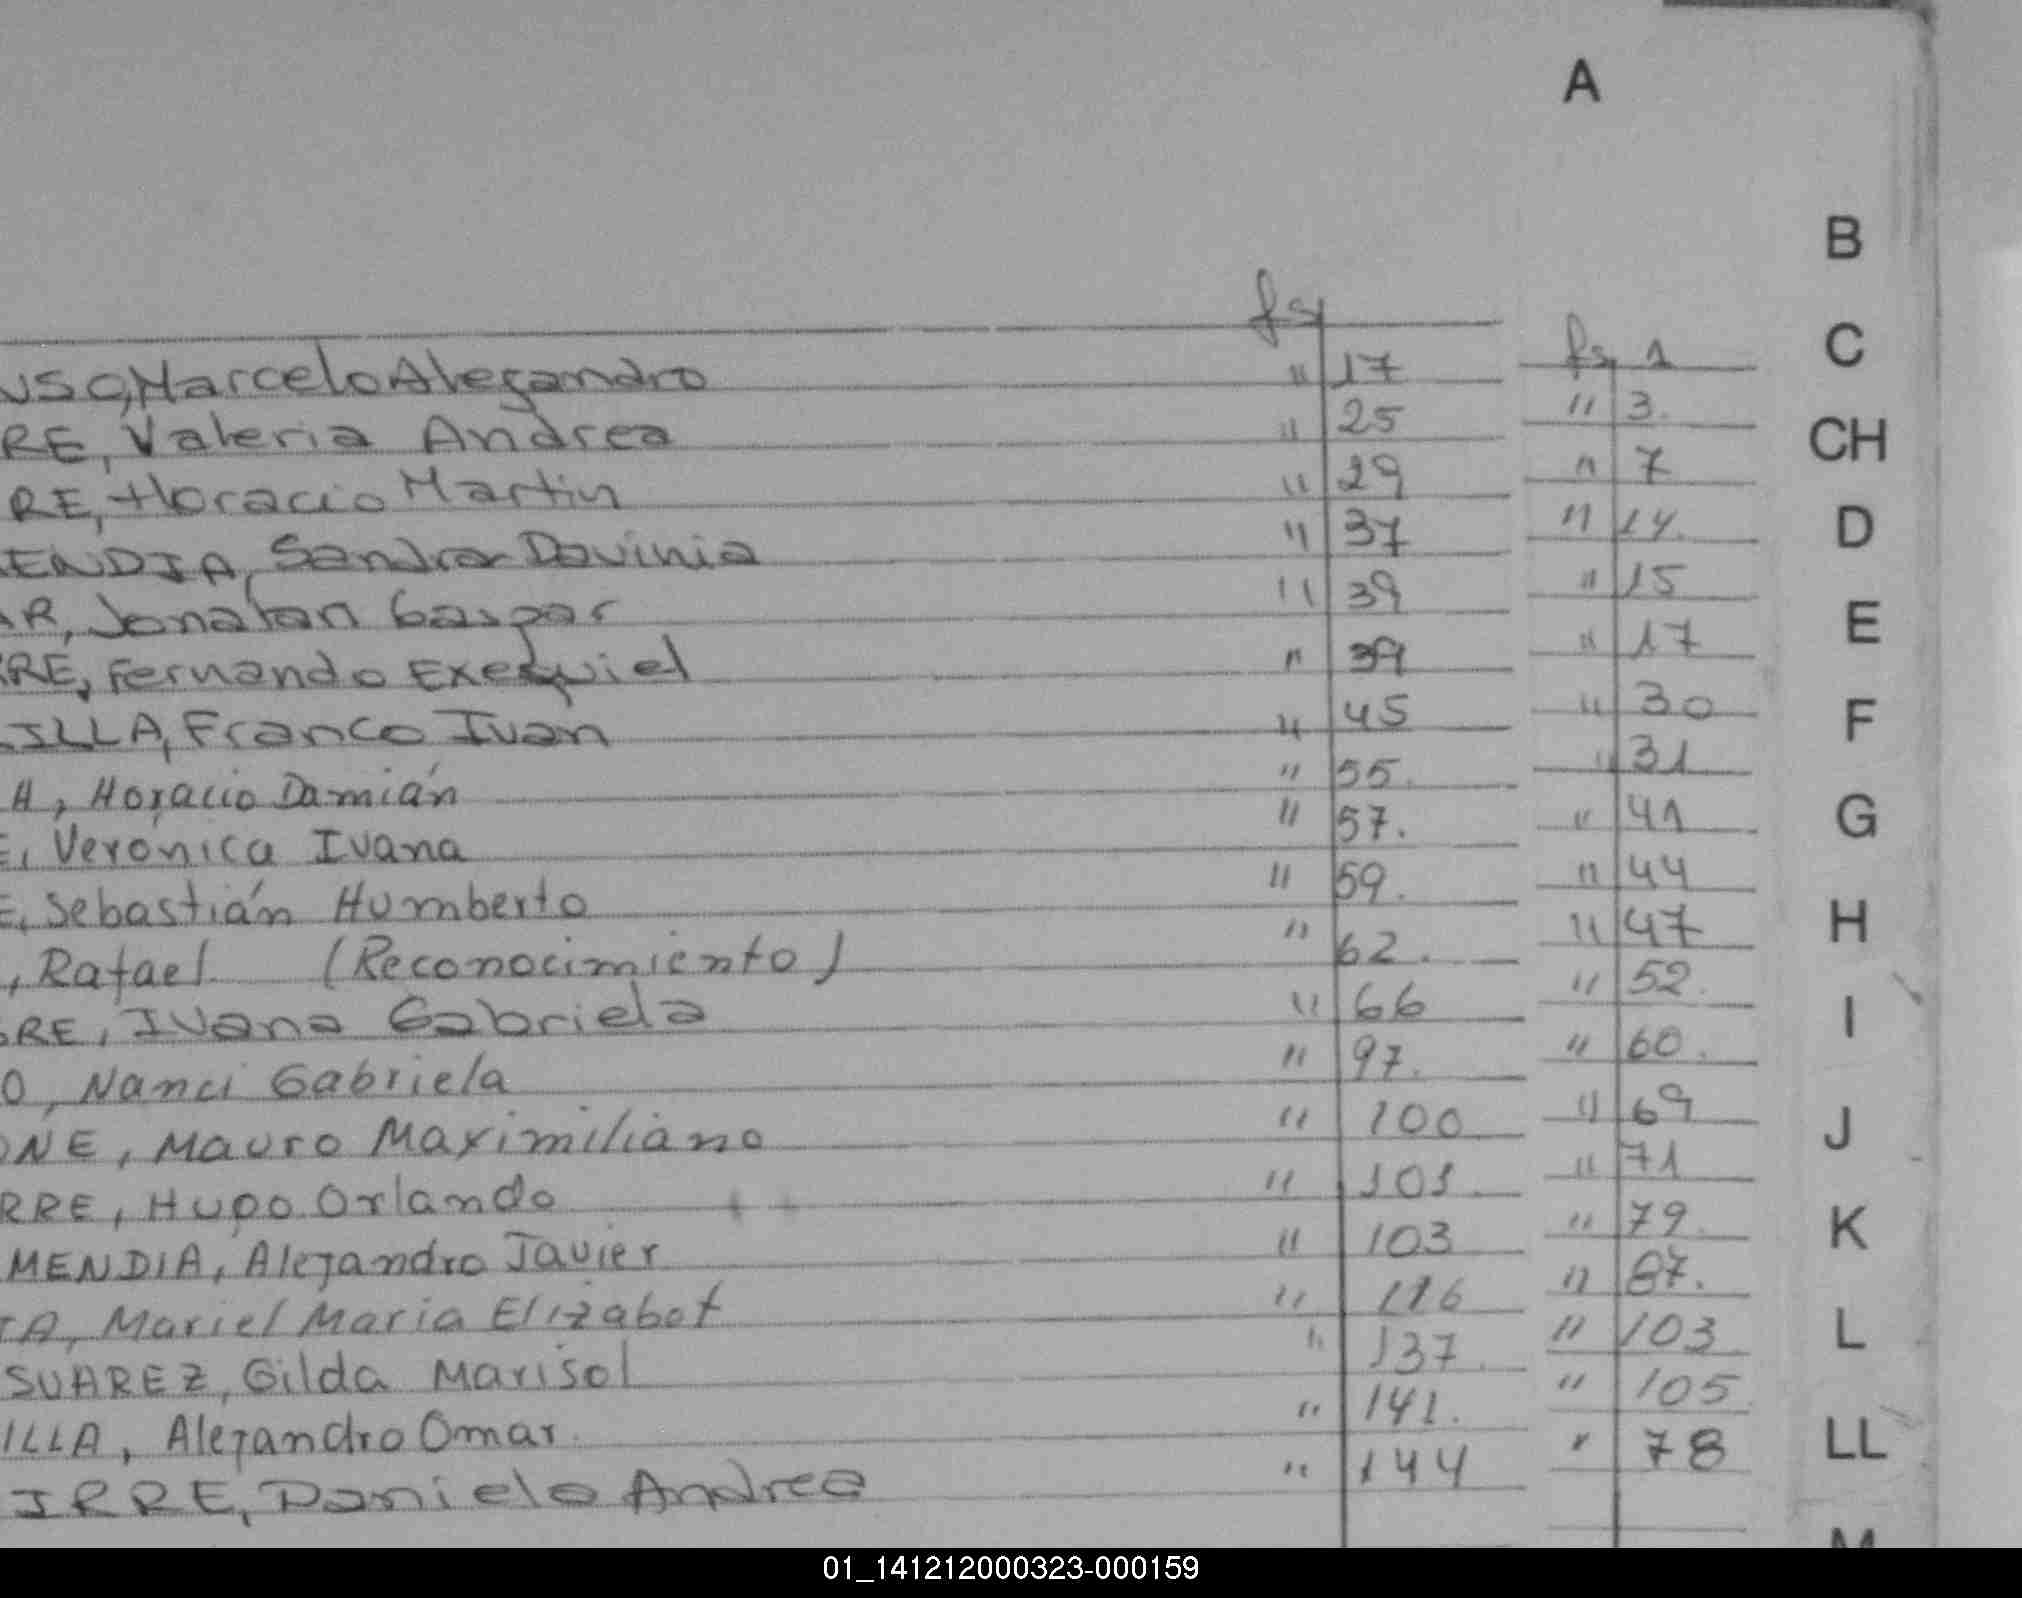 A
B
C
CH
D
E
F
G
H
I
J
K
L
LL
M
fs
NSO, Marcelo Alejandro " 17
RE, Valeria Andrea " 25
RE, Horacio Martin " 29
ENDIA, Sandra Davinia " 37
AR, Jonatan Gaspar " 39
RRE, Fernando Exequiel " 39
ILLA, Franco Ivan " 45
H, Horacio Damián " 55.
E, Verónica Ivana " 57.
E, Sebastián Humberto " 59.
, Rafael (Reconocimiento) " 62.
RRE, Ivana Gabriela " 66
O, Nanci Gabriela " 97.
ONE, Mauro Maximiliano " 100
RRE, Hugo Orlando " 101
MENDIA, Alejandro Javier " 103
TA, Mariel Maria Elizabet " 116
SUAREZ, Gilda Marisol " 137
ILLA, Alejandro Omar " 141.
IRRE, Daniela Andrea " 144
fs 1
" 3.
" 7
" 14.
" 15
" 17
" 30
" 31
" 41
" 44
" 47
" 52.
" 60.
" 69
" 71
" 79.
" 87.
" 103
" 105
" 78
01_141212000323-000159